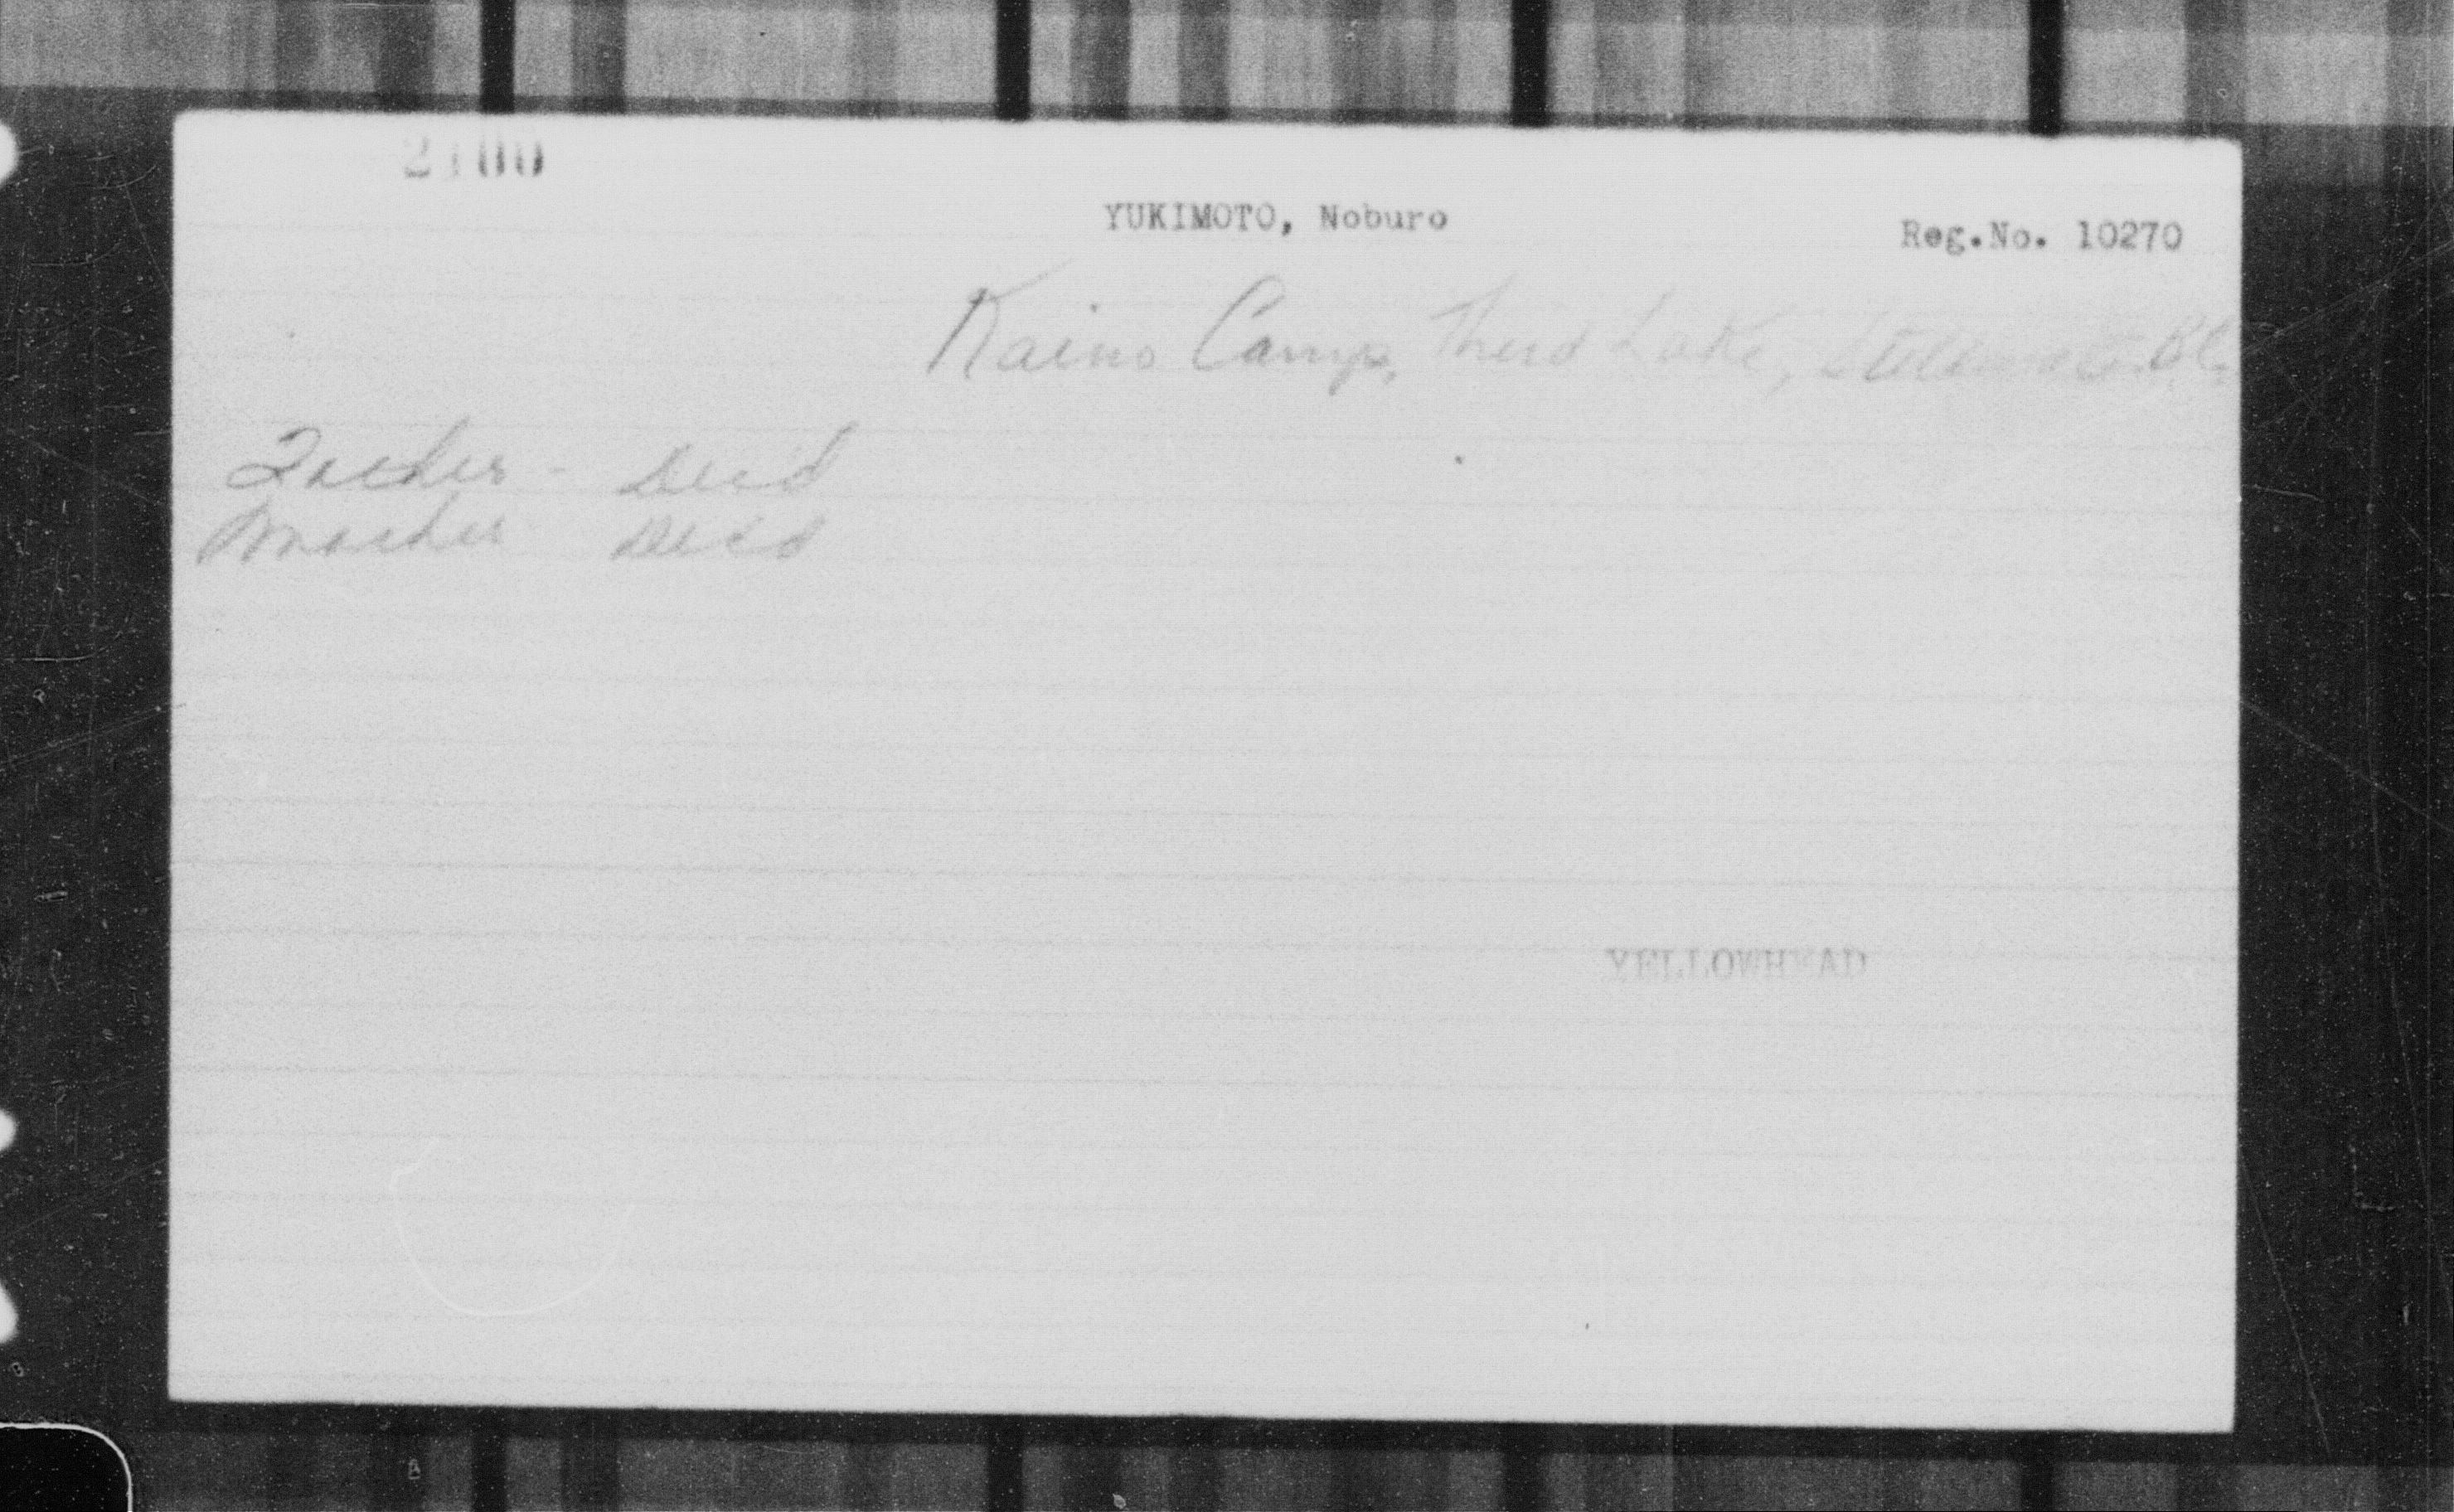 2100
YUKIMOTO, Noburo
Reg.No. 10270
Kains Camp, Third Lake, B.C.
Father - Dec'd
Mother - Dec'd
YELLOWHEAD